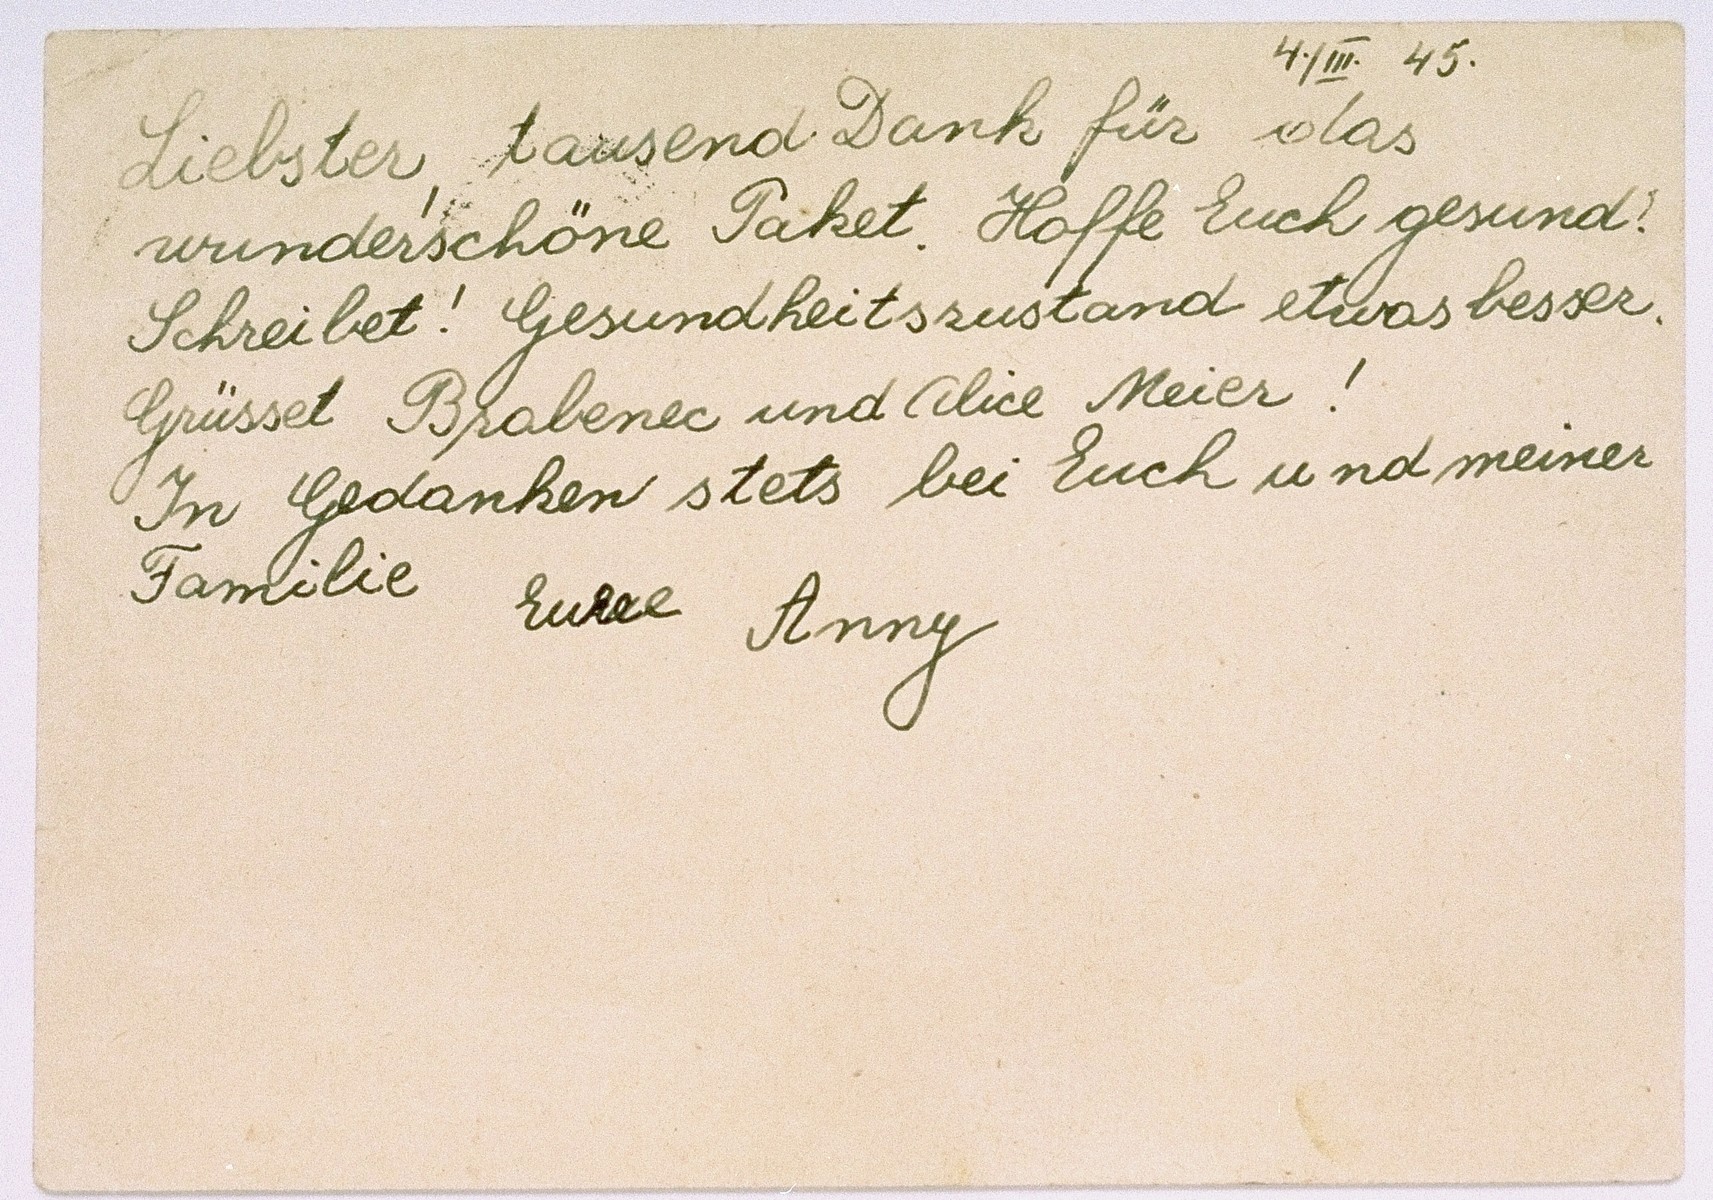 4./III. 45.
Liebster, tausend Dank für das
wunderschöne Paket. Hoffe Euch gesund!
Schreibet! Gesundheitszustand etwas besser.
Grüsset Brabenec und Alice Meier!
In Gedanken stets bei Euch und meiner
Familie
Eure Anny